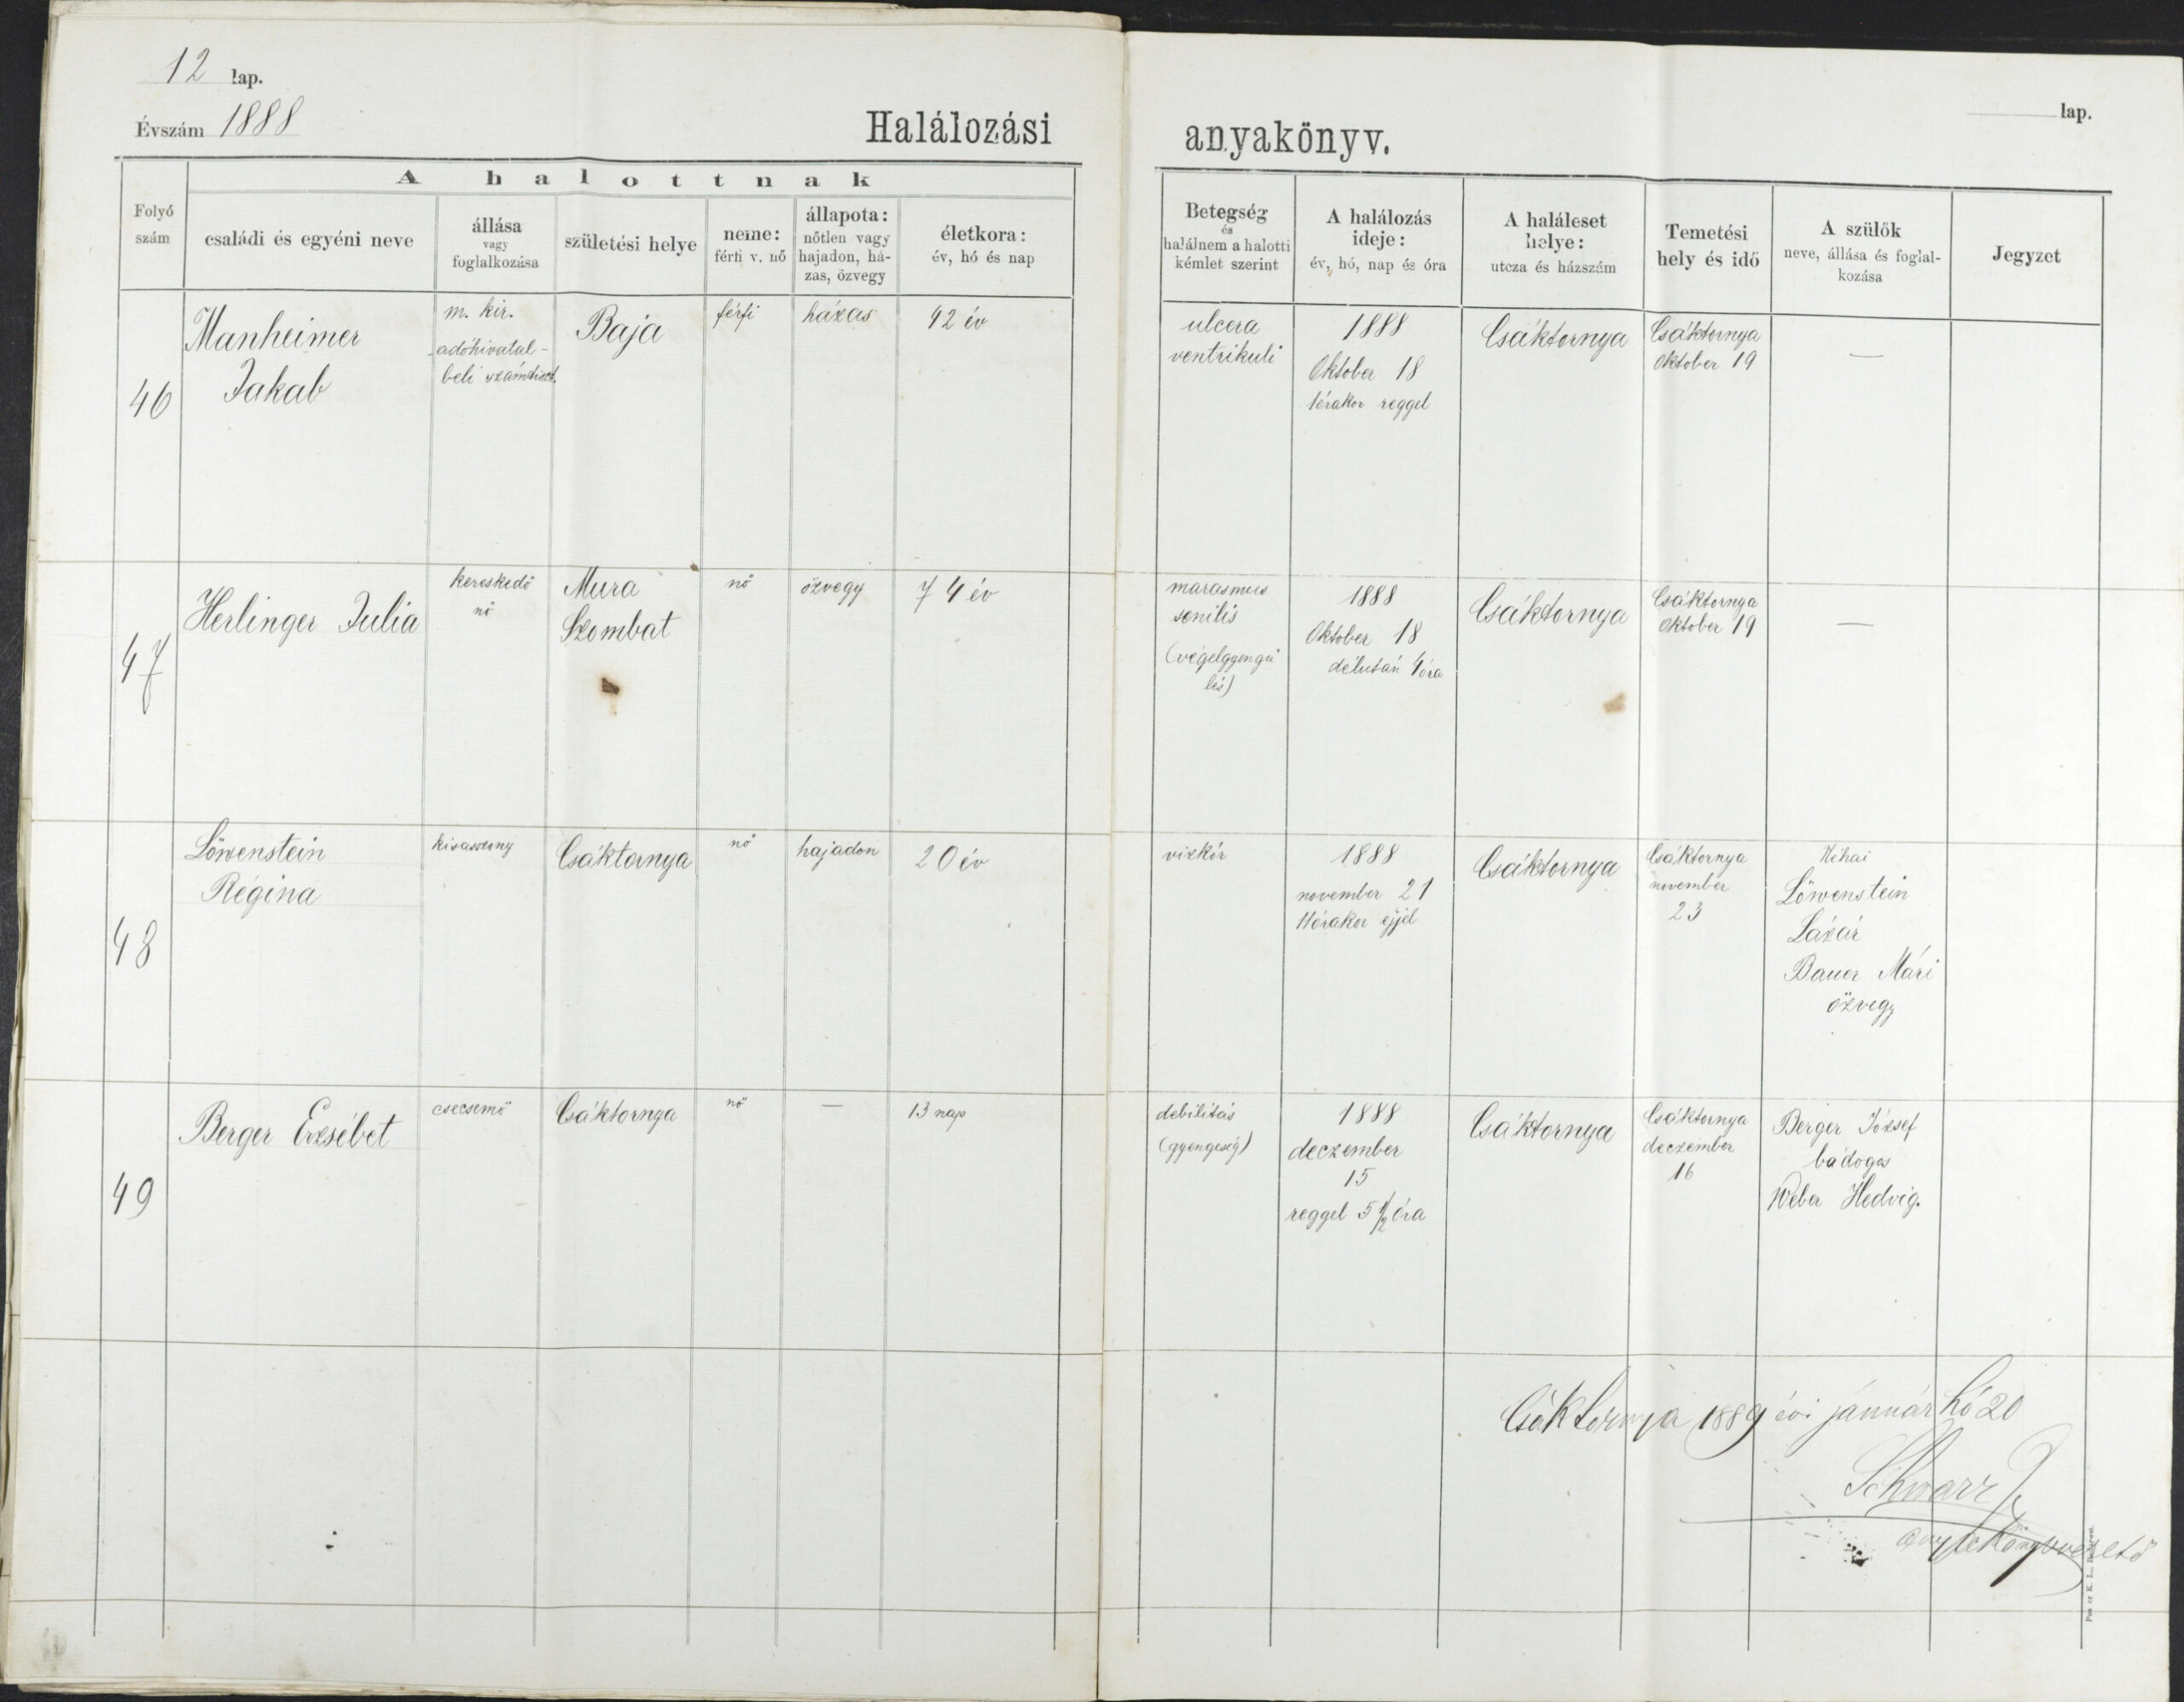 12 lap.
Évszám 1888
Halálozási anyakönyv.
lap.
Folyó szám
A halottnak
családi és egyéni neve
állása vagy foglalkozása
születési helye
neme: férfi v. nő
állapota: nőtlen vagy hajadon, há-
zas, özvegy
életkora: év, hó és nap
Betegség és halálnem a halotti kémlet szerint
A halálozás ideje: év, hó, nap és óra
A haláleset helye: utcza és házszám
Temetési hely és idő
A szülők neve, állása és foglal-
kozása
Jegyzet
46
Manheimer
Jakab
m. kir.
adóhivatal-
beli számtiszt.
Baja
férfi
házas
42 év
ulcera
ventrikuli
1888
Oktober 18
1 órakor reggel
Csáktornya
Csáktornya
Oktober 19
—
47
Herlinger Julia
kereskedő
nő
Mura
Szombat
nő
özvegy
74 év
marasmus
senilis
(végelgyengü
lés)
1888
Oktober 18
délután 4 óra
Csáktornya
Csáktornya
Oktober 19
—
48
Löwenstein
Régina
kisasszony
Csáktornya
nő
hajadon
20 év
vizkór
1888
november 21
11 órakor éjjel
Csáktornya
Csáktornya
november
23
Néhai
Löwenstein
Lázár
Bauer Mári
özvegy
49
Berger Erzsébet
csecsemő
Csáktornya
nő
—
13 nap
debilitás
(gyengeség)
1888
deczember
15
reggel 5 1/2 óra
Csáktornya
Csáktornya
deczember
16
Berger József
bádogos
Weber Hedvig.
Csáktornya 1889 évi január hó 20
Schwarz
anyakönyvvezető